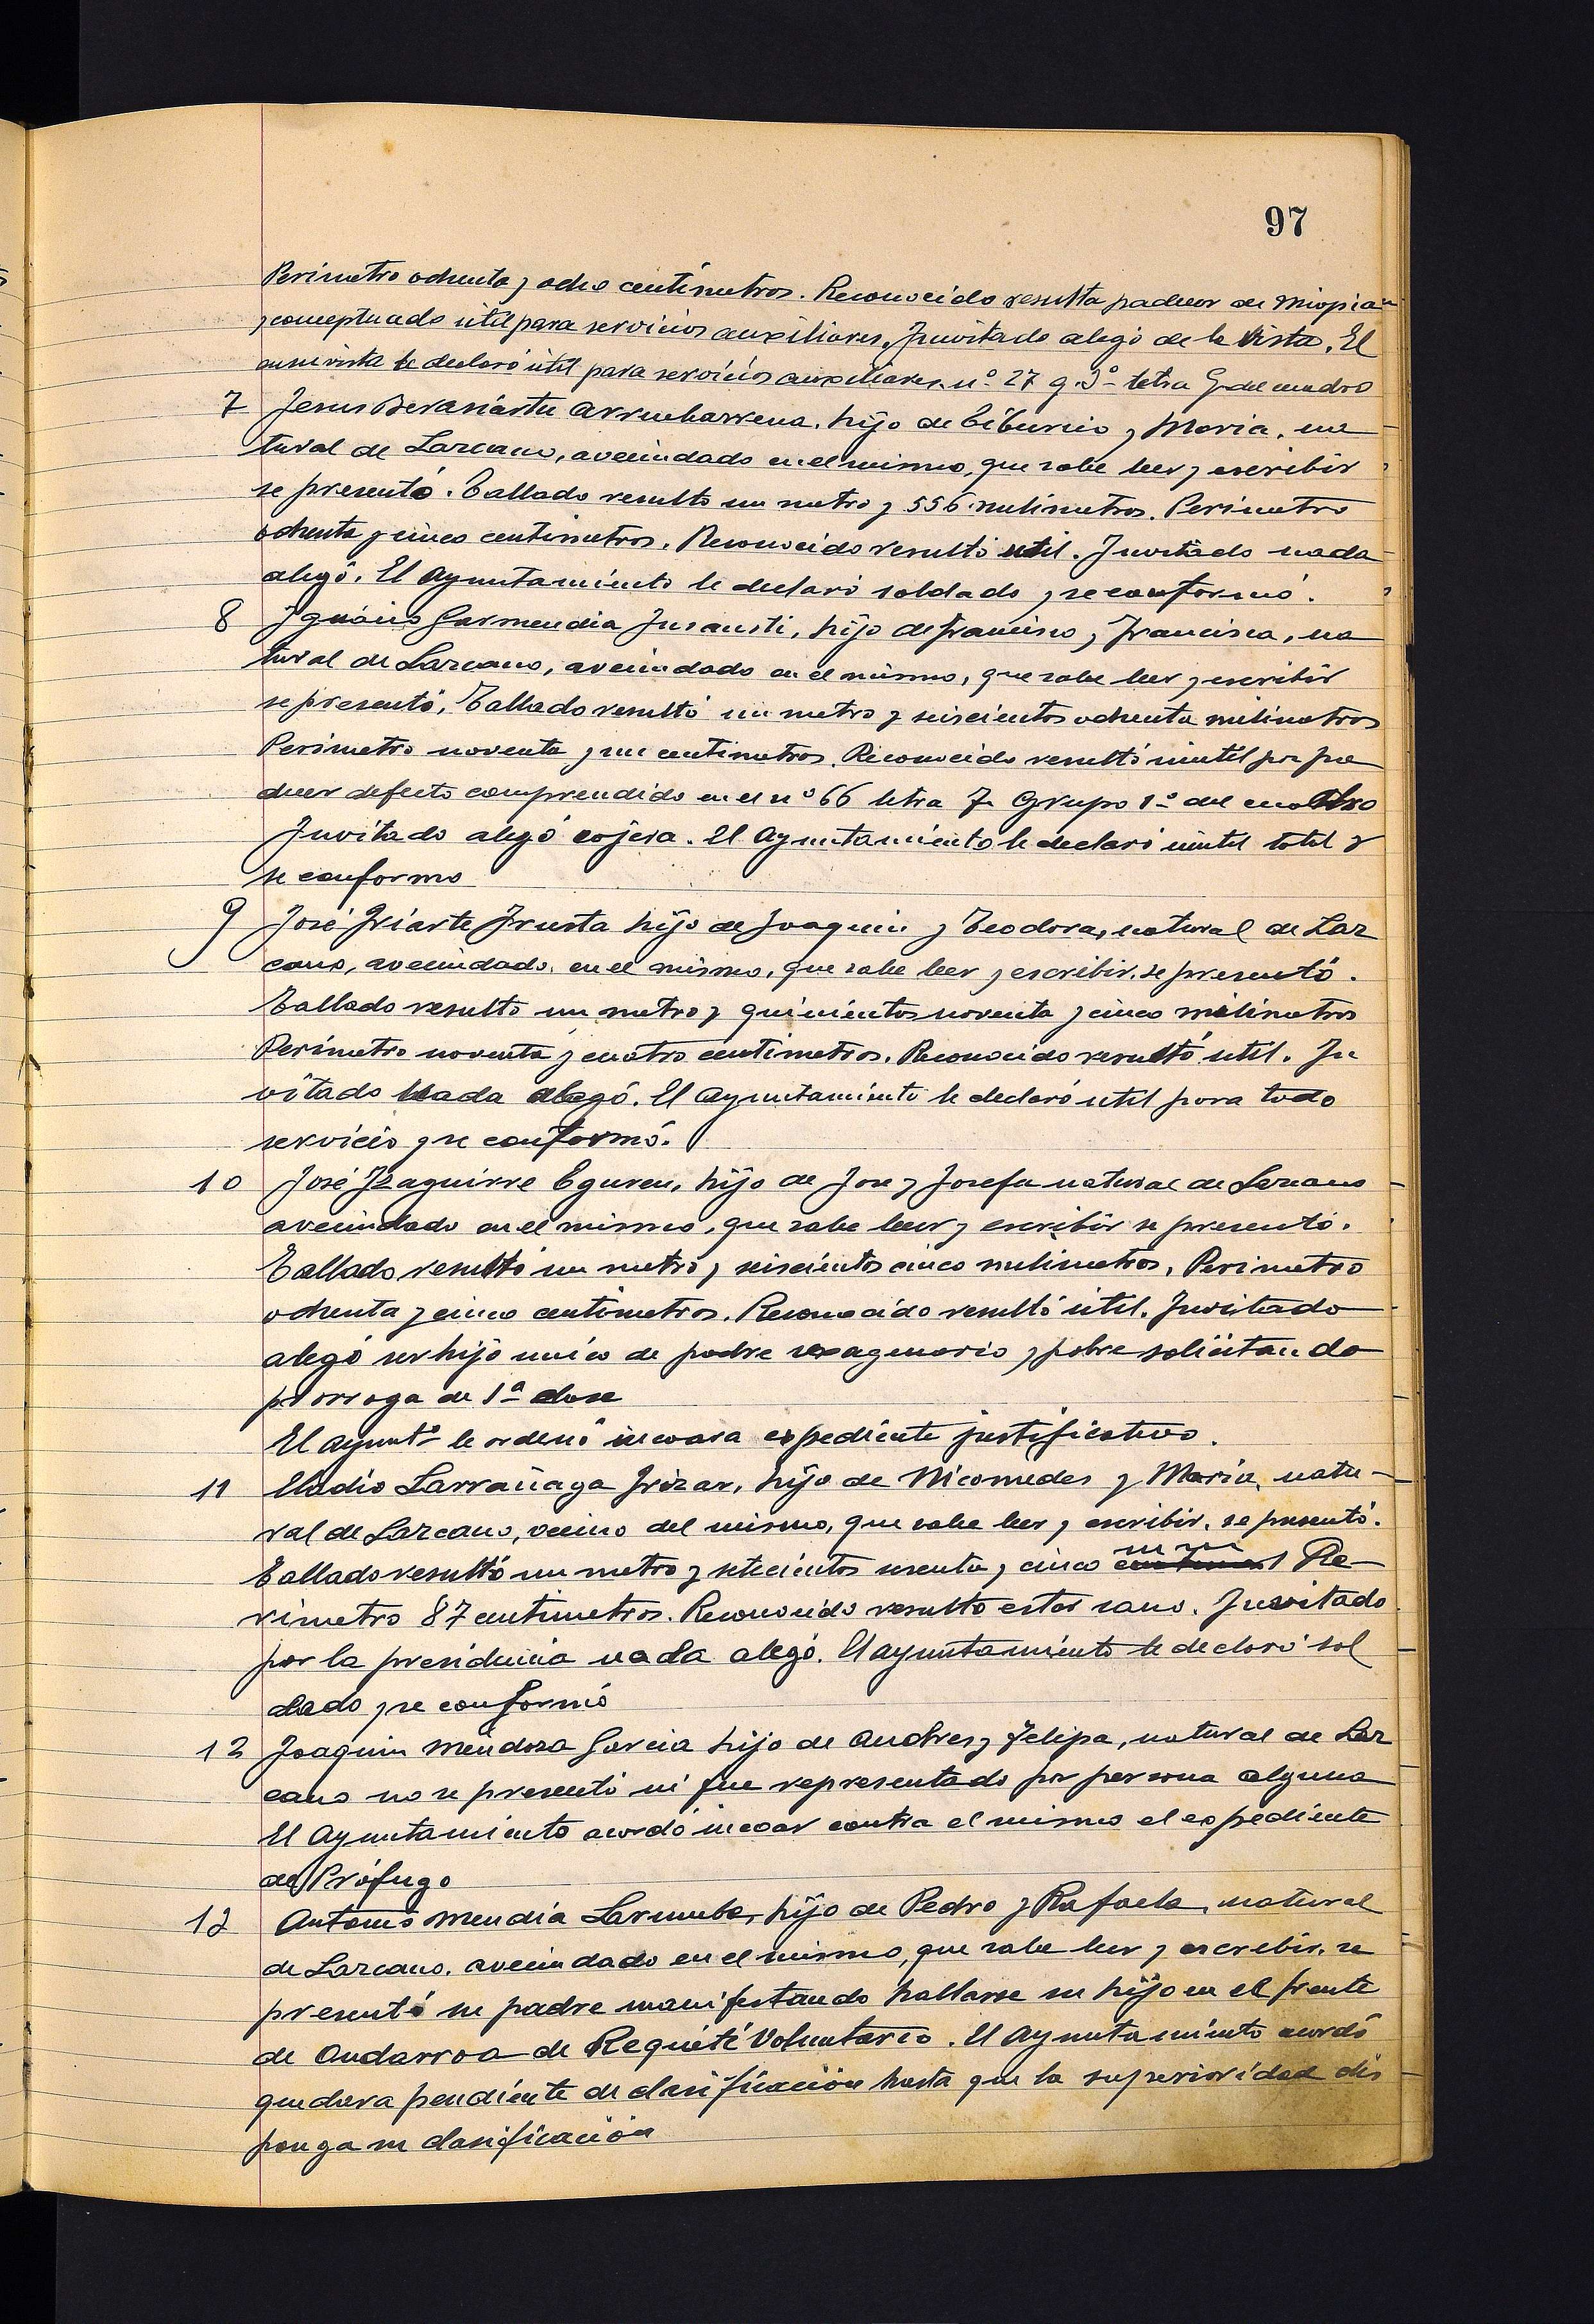 97
Perimetro ochenta y ocho centimetros. Reconocido resulta padecer de miopia
y conceptuado util para servicios auxiliares. Invitado alegó de la vista. El
en su vista le declaró útil para servicios auxiliares nº 27 g. 3º letra G del cuadro
7 Jesus Berasiartu Arrubarrena, hijo de Tiburcio y Maria, na
tural de Lazcano, avecindado en el mismo, que sabe leer y escribir
se presentó. Tallado resulto un metro y 556 milimetros. Perimetro
ochenta y cinco centimetros. Reconocido resultó util. Invitado nada
alegó. El Ayuntamiento le declaró soldado y se conformó.
8 Ignacio Garmendia Insausti, hijo de Francisco y Francisca, na
tural de Lazcano, avecindado en el mismo, que sabe leer y escribir
se presentó, Tallado resultó un metro y seiscientos ochenta milimetros
Perimetro noventa y un centimetros. Reconocido resultó inutil por pa
decer defecto comprendido en el nº 66 letra F Grupo 1º del cuadro
Invitado alegó cojera. El Ayuntamiento le declaró inutil total y
se conformo
9 José Iriarte Irusta hijo de Joaquin y Teodora, natural de Laz
cano, avecindado en el mismo, que sabe leer y escribir, se presentó.
Tallado resulto un metro y quinientos noventa y cinco milimetros
Perimetro noventa y cuatro centimetros. Reconocido resultó util. In
vitado nada alegó. El Ayuntamiento le declaró util para todo
servicio y se conformó.
10 José Izaguirre Eguren, hijo de Jose y Josefa natural de Lazcano
avecindado en el mismo, que sabe leer y escribir se presentó.
Tallado resultó un metro y seiscientos cinco milimetros, Perimetro
ochenta y cinco centimetros. Reconocido resultó util. Invitado
alegó ser hijo unico de padre sexagenario y pobre solicitando
prorroga de 1ª clase
El Ayuntº le ordenó incoara expediente justificativo.
11 Eladio Larrañaga Irizar, hijo de Nicomedes y Maria, natu-
ral de Lazcano, vecino del mismo, que sabe leer y escribir, se presentó.
Tallado resultó un metro y setecientos sesenta y cinco Pe-
rimetro 87 centimetros. Reconocido resulto estar sano. Invitado
por la presidencia nada alegó. El Ayuntamiento le declaró sol
dado y se conformó
12 Joaquin Mendoza Garcia hijo de Andres y Felipa, natural de Laz
cano no se presentó ni fue representado por persona alguna
El Ayuntamiento acordó incoar contra el mismo el expediente
de Prófugo
13 Antonio Mendia Larrumbe, hijo de Pedro y Rafaela, natural
de Lazcano, avecindado en el mismo, que sabe leer y escribir, se
presentó su padre manifestando hallarse su hijo en el frente
de Ondarroa de Requeté Voluntario. El Ayuntamiento acordó
quedara pendiente de clasificación hasta que la superioridad dis
ponga su clasificación